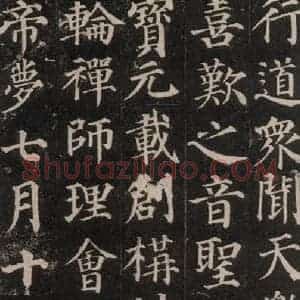 行道衆聞天
喜歎之音聖
寶元載創構
輪禪師理會
帝夢七月十
shufaziliao.com